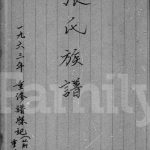 張氏族譜
一九六三年重修譜牒記
Family